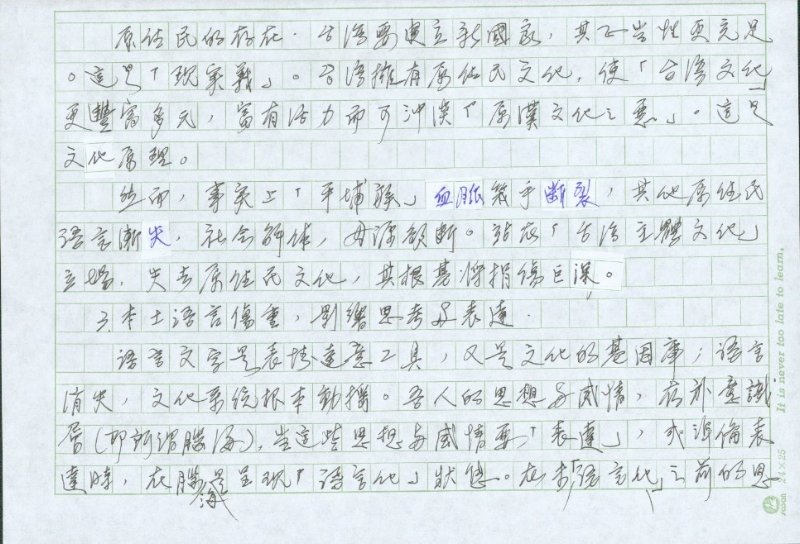 原住民的存在,台灣要建立新國家,其正當性更充足
。這是「現實義」。台灣擁有原住民文化,使「台灣文化」
更豐富多元,富有活力而可沖淡「原漢文化之惡」。這是
文化原理。
然而,事實上「平埔族」血脈幾乎斷裂,其他原住民
語言漸失,社會解体,母源頻斷。站在「台灣主體文化」
立場,失去原住民文化,其根基將損傷巨深。
3 本土語言傷重,影響思考與表達.
語言文字是表情達意工具,又是文化的基因庫;語言
消失,文化系統根本動搖。吾人的思想與感情,在於意識
層(即所謂腦海),當這些思想與感情要「表達」,或準備表
達時,在腦海是呈現「語言化」狀態。在未「語言化」之前的思
It is never too late to learn.
24×25